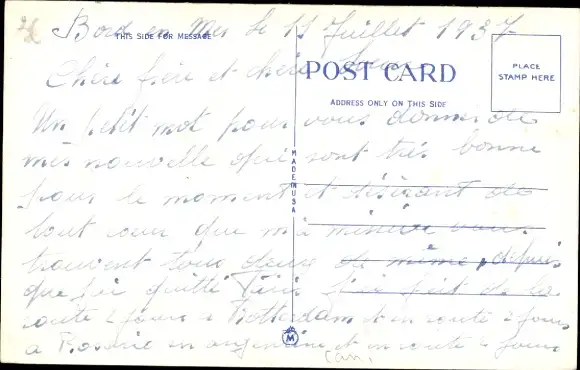 Bord en Mer le 11 Juillet 1937
THIS SIDE FOR MESSAGE
Chère frère et chère
POST CARD
PLACE
STAMP HERE
ADDRESS ONLY ON THIS SIDE
Un petit mot pour vous donner de
mes nouvelle qui sont très bonne
MADE IN USA
pour le moment et désirant de
tout cœur que ma vous
trouvent tous deux de même, depuis
que j'ai quitté fait de la
route 2 jours a Rotterdam et en route 2 jours
a Rosario en argentine et en route 2 jours
M